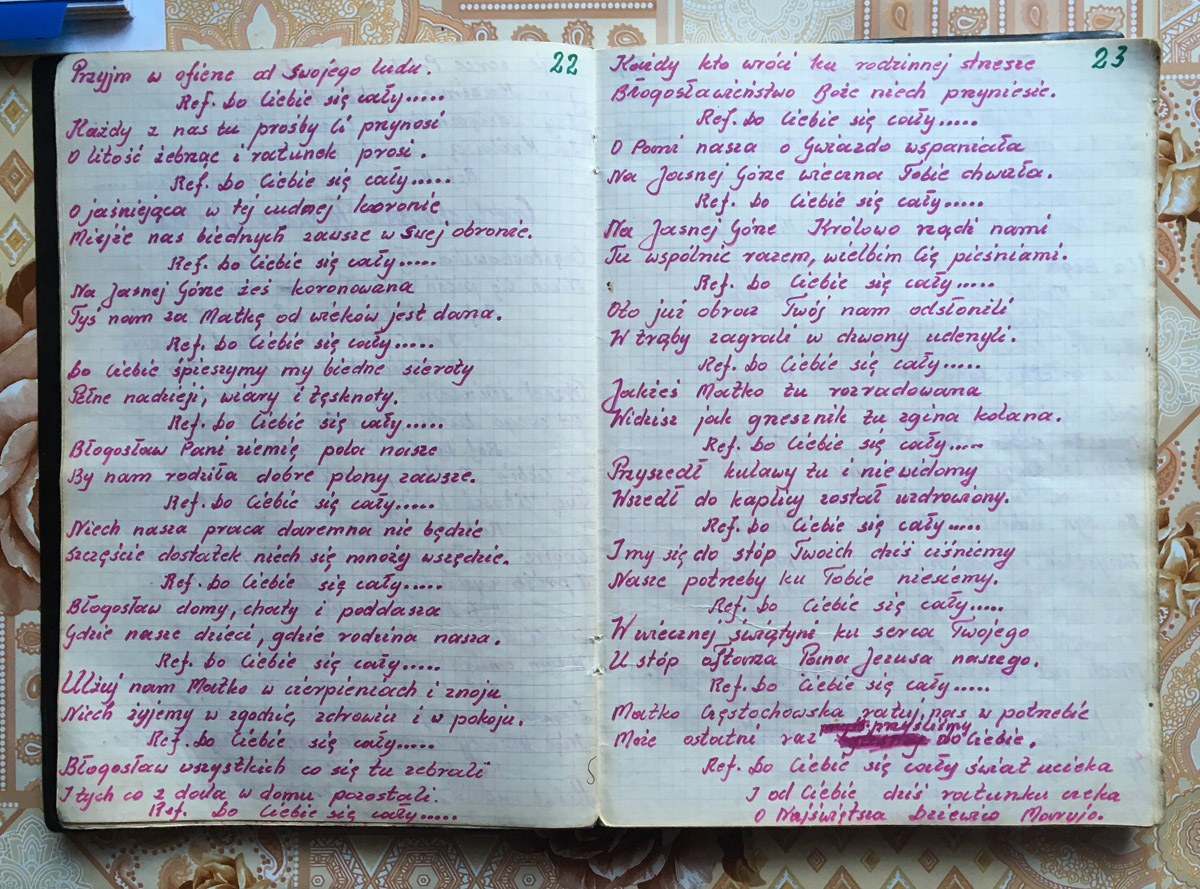 22
Przyjm w ofierze od swojego ludu.
Ref. Do Ciebie się cały.....
Każdy z nas tu prośby Ci przynosi
O litość żebrząc i ratunek prosi.
Ref. Do Ciebie się cały.....
O jaśniejąca w tej cudnej koronie
Miejże nas biednych zawsze w swej obronie.
Ref. Do Ciebie się cały.....
Na Jasnej Górze żeś koronowana
Tyś nam za Matkę od wieków jest dana.
Ref. Do Ciebie się cały.....
Do Ciebie śpieszymy my biedne sieroty
Pełne nadzieji, wiary i tęsknoty.
Ref. Do Ciebie się cały.....
Błogosław Pani ziemię pola nasze
By nam rodziła dobre plony zawsze.
Ref. Do Ciebie się cały.....
Niech nasza praca daremna nie będzie
Szczęście dostatek niech się mnoży wszędzie.
Ref. Do Ciebie się cały.....
Błogosław domy, chaty i poddasza
Gdzie nasze dzieci, gdzie rodzina nasza.
Ref. Do Ciebie się cały.....
Ulżyj nam Matko w cierpieniach i znoju
Niech żyjemy w zgodzie, zdrowiu i w pokoju.
Ref. Do Ciebie się cały.....
Błogosław wszystkich co się tu zebrali
I tych co z dala w domu pozostali.
Ref. Do Ciebie się cały.....
23
Każdy kto wróci ku rodzinnej strzesze
Błogosławieństwo Boże niech przyniesie.
Ref. Do Ciebie się cały.....
O Pani nasza o Gwiazdo wspaniała
Na Jasnej Górze wieczna Tobie chwała.
Ref. Do Ciebie się cały.....
Na Jasnej Górze Królowo rządź nami
Tu wspólnie razem, wielbim Cię pieśniami.
Ref. Do Ciebie się cały.....
Oto już obraz Twój nam odsłonili
W trąby zagrali w dzwony uderzyli.
Ref. Do Ciebie się cały.....
Jakżeś Matko tu rozradowana
Widzisz jak grzesznik tu zgina kolana.
Ref. Do Ciebie się cały.....
Przyszedł kulawy tu i niewidomy
Wszedł do kaplicy został uzdrowiony.
Ref. Do Ciebie się cały.....
I my się do stóp Twoich dziś ciśniemy
Nasze potrzeby ku Tobie niesiemy.
Ref. Do Ciebie się cały.....
W wiecznej świątyni ku serca Twojego
U stóp ołtarza Pana Jezusa naszego.
Ref. Do Ciebie się cały.....
Matko Częstochowska ratuj nas w potrzebie
Może ostatni raz przyszliśmy do Ciebie.
Ref. Do Ciebie się cały świat ucieka
I od Ciebie dziś ratunku czeka
O Najświętsza Dziewico Maryjo.